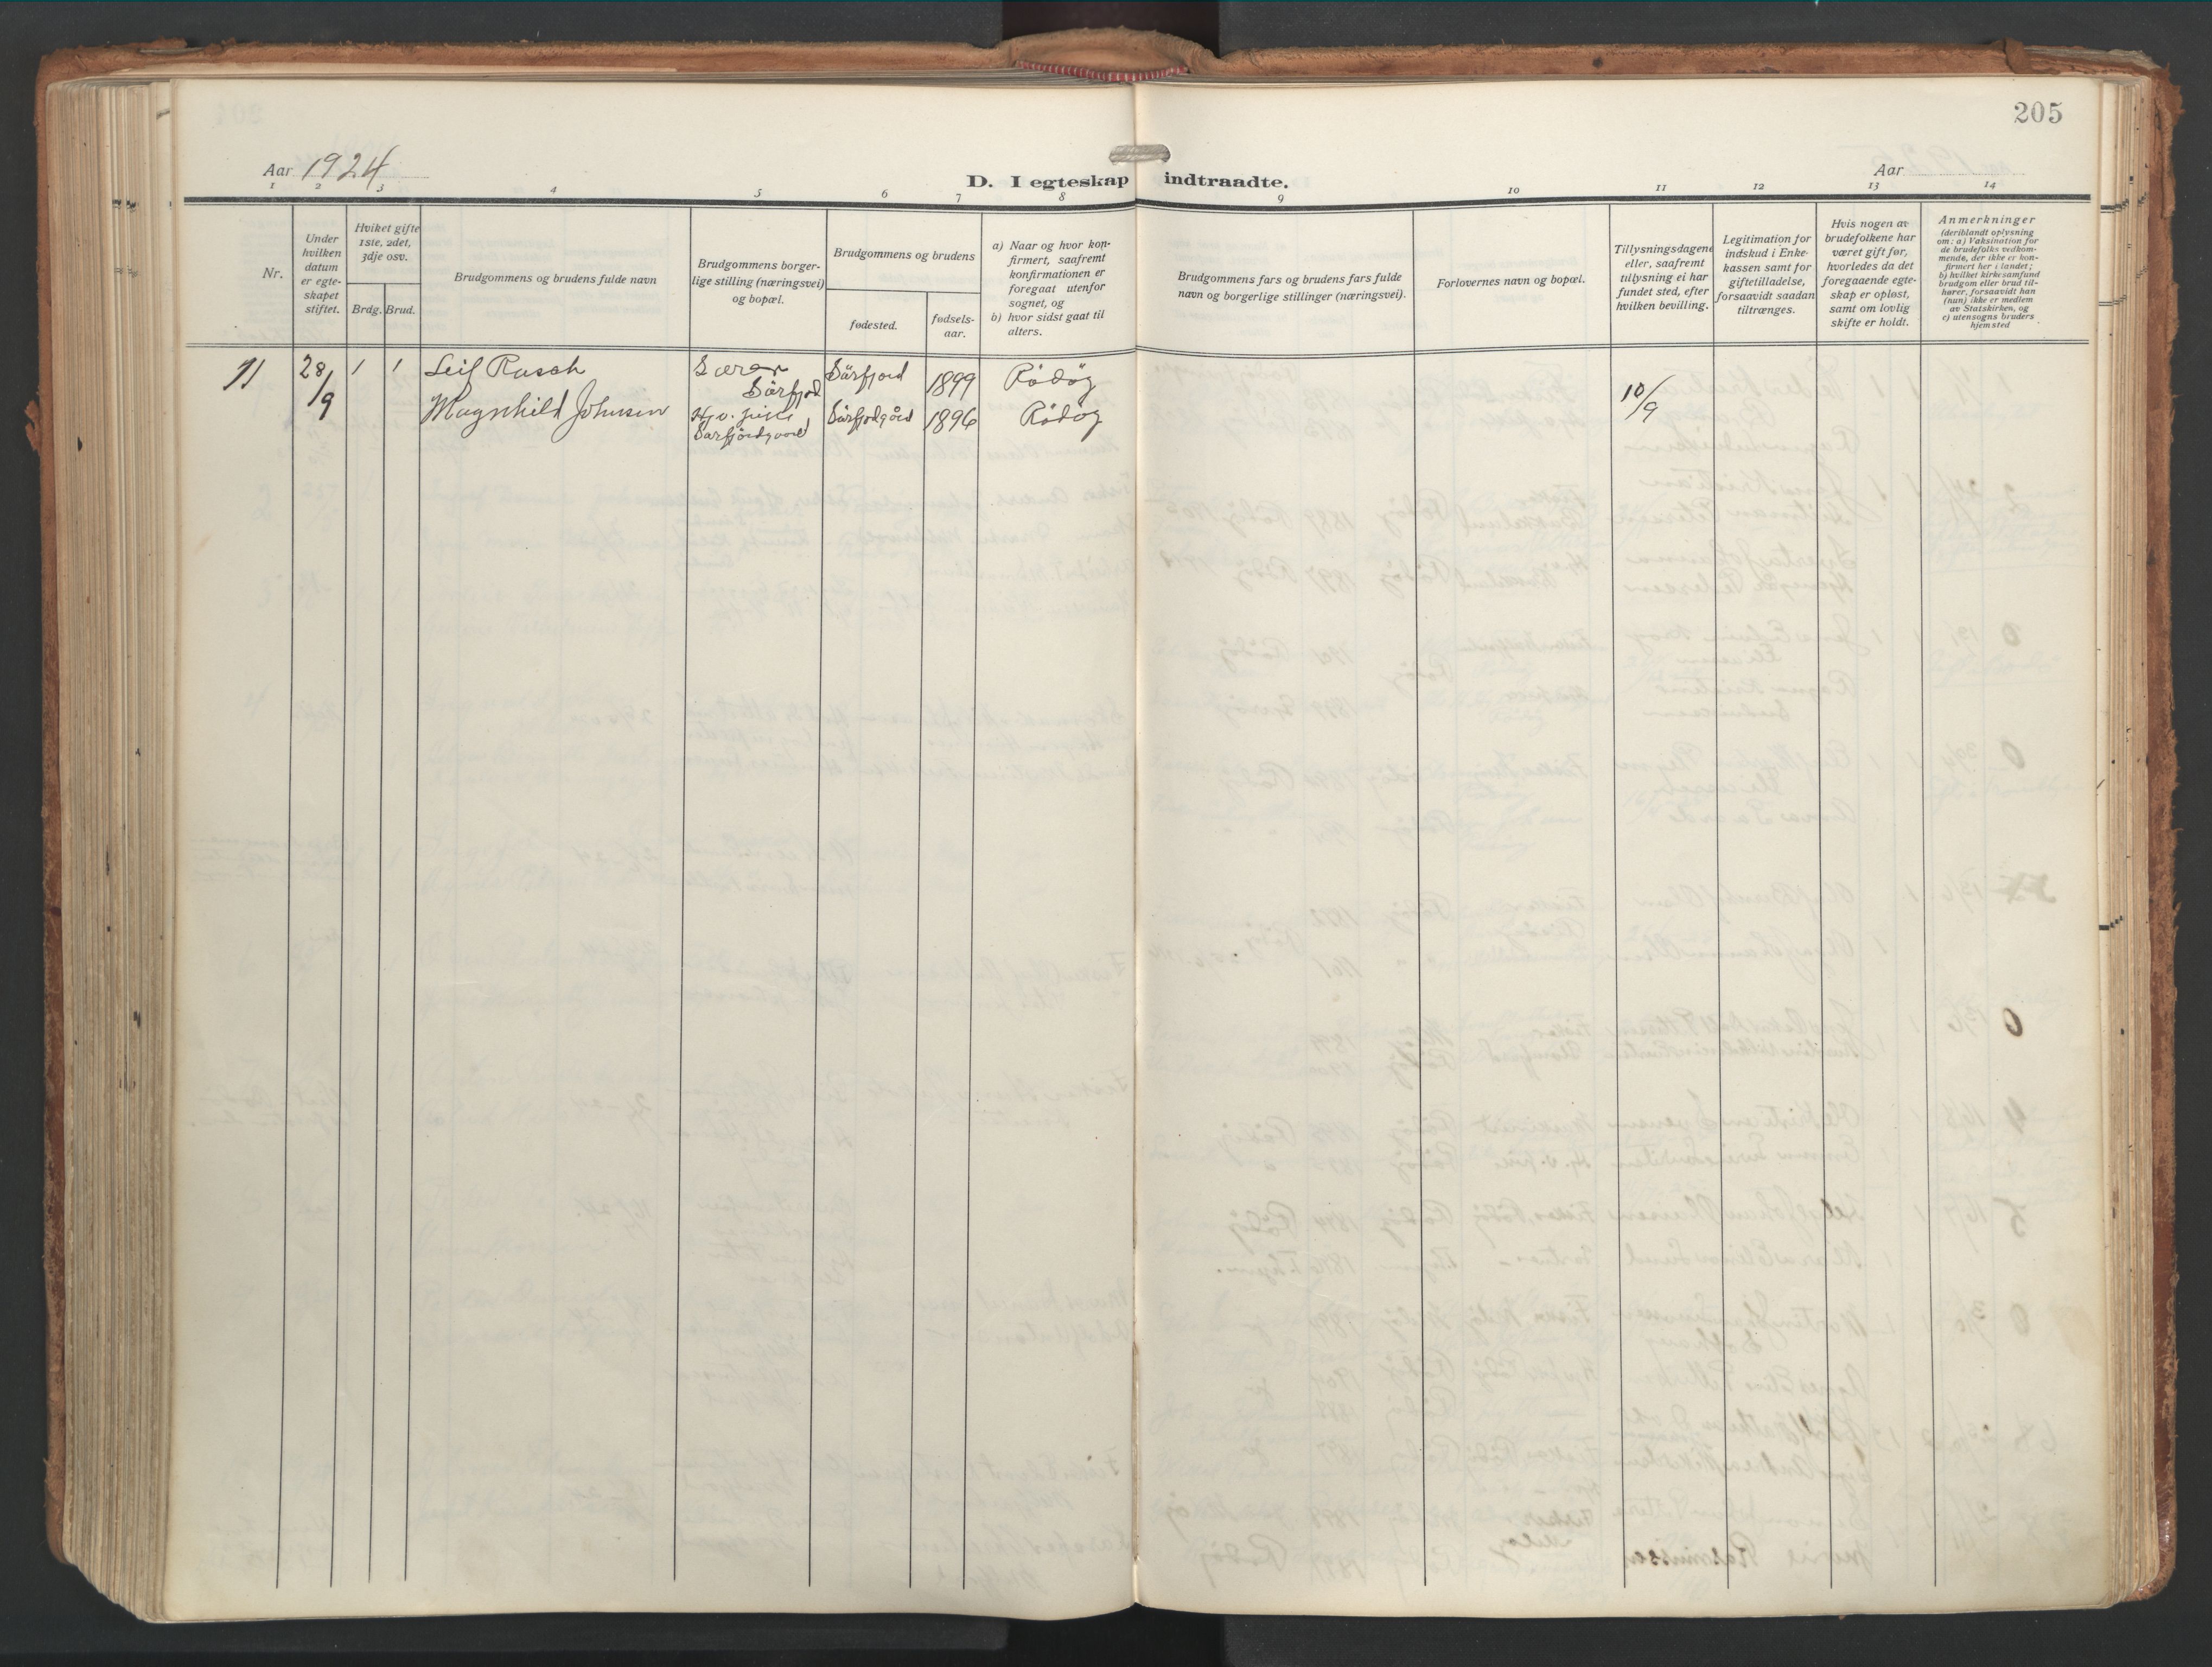 205
Aar 1924
D. I egteskap indtraadte.
Aar
1 2 3 4 5 6 7 8 9 10 11 12 13 14
Nr.
Under
hvilken
datum
er egte-
skapet
stiftet.
Hviket gifte
1ste, 2det,
3dje osv.
Brdg. Brud.
Brudgommens og brudens fulde navn
Brudgommens borger-
lige stilling (næringsvei)
og bopæl.
Brudgommens og brudens
fødested.
fødsels-
aar.
a) Naar og hvor kon-
firmert, saafremt
konfirmationen er
foregaat utenfor
sognet, og
b) hvor sidst gaat til
alters.
Brudgommens fars og brudens fars fulde
navn og borgerlige stillinger (næringsvei).
Forlovernes navn og bopæl.
Tillysningsdagene
eller, saafremt
tillysning ei har
fundet sted, efter
hvilken bevilling.
Legitimation for
indskud i Enke-
kassen samt for
giftetilladelse,
forsaavidt saadan
tiltrænges.
Hvis nogen av
brudefolkene har
været gift før,
hvorledes da det
foregaaende egte-
skap er opløst,
samt om lovlig
skifte er holdt.
Anmerkninger
(deriblandt oplysning
om: a) Vaksination for
de brudefolks vedkom-
mende, der ikke er kon-
firmert her i landet;
b) hvilket kirkesamfund
brudgom eller brud til-
hører, forsaavidt han
(hun) ikke er medlem
av Statskirken, og
c) utensogns bruders
hjemsted
11 28/9 1 1 Leif Rasch Lærer Sörfjord 1899 Rödöy 10/9
Sörfjord
Magnhild Johnsen Hj.v. pike Sörfjordgård 1896 Rödöy
Sörfjordgaard